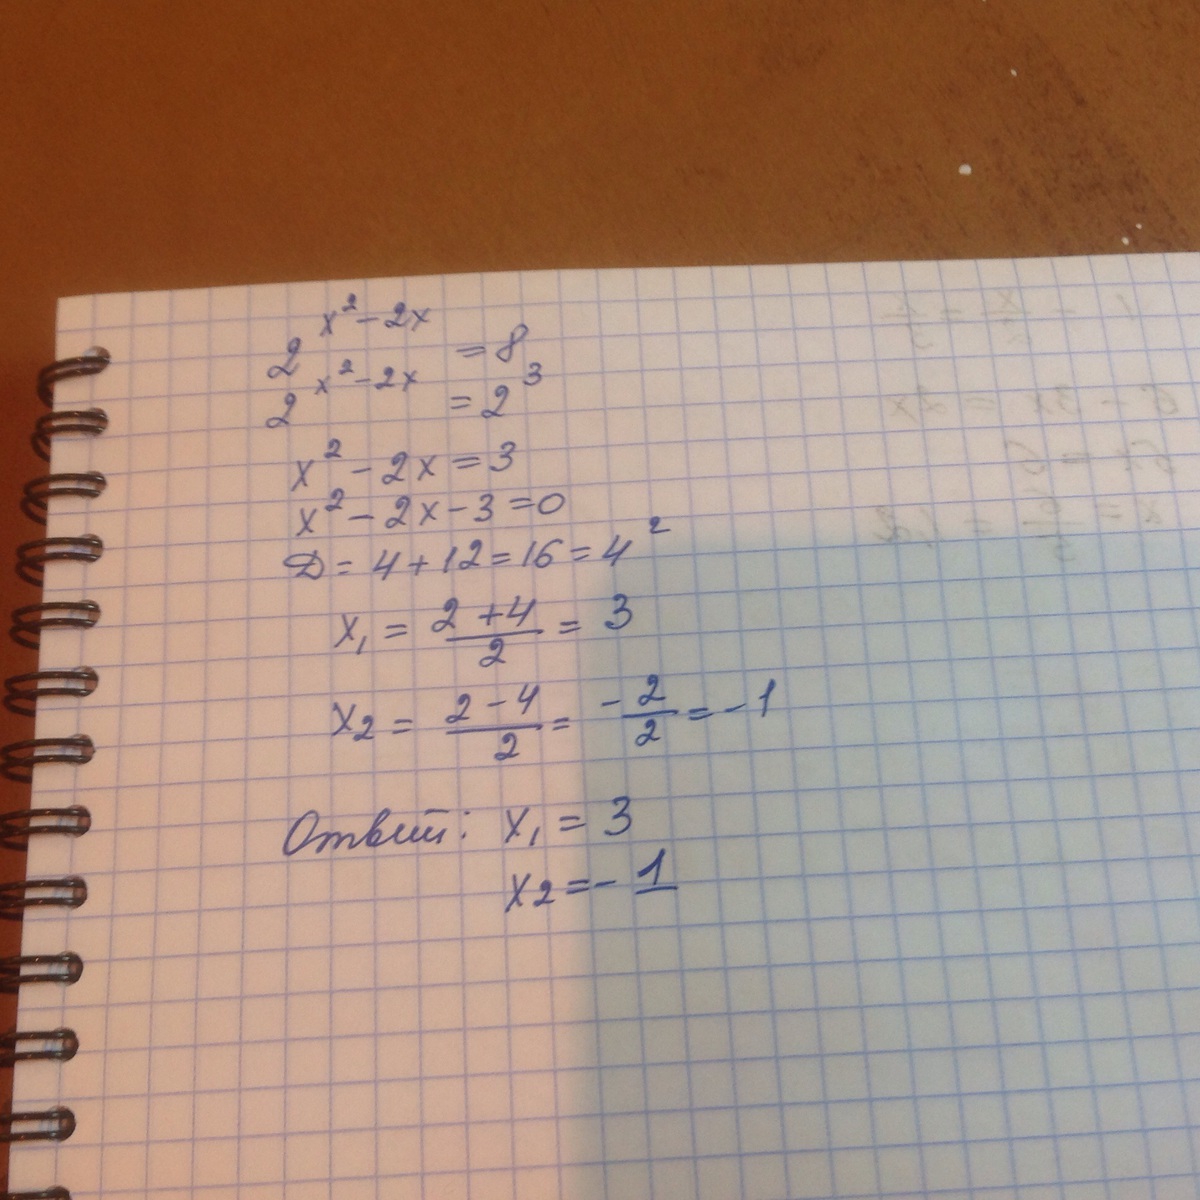 2^(x²-2x) = 8
2^(x²-2x) = 2³
x² - 2x = 3
x² - 2x - 3 = 0
D = 4 + 12 = 16 = 4²
x₁ = (2 + 4)/2 = 3
x₂ = (2 - 4)/2 = -2/2 = -1
Ответ: x₁ = 3
x₂ = -1